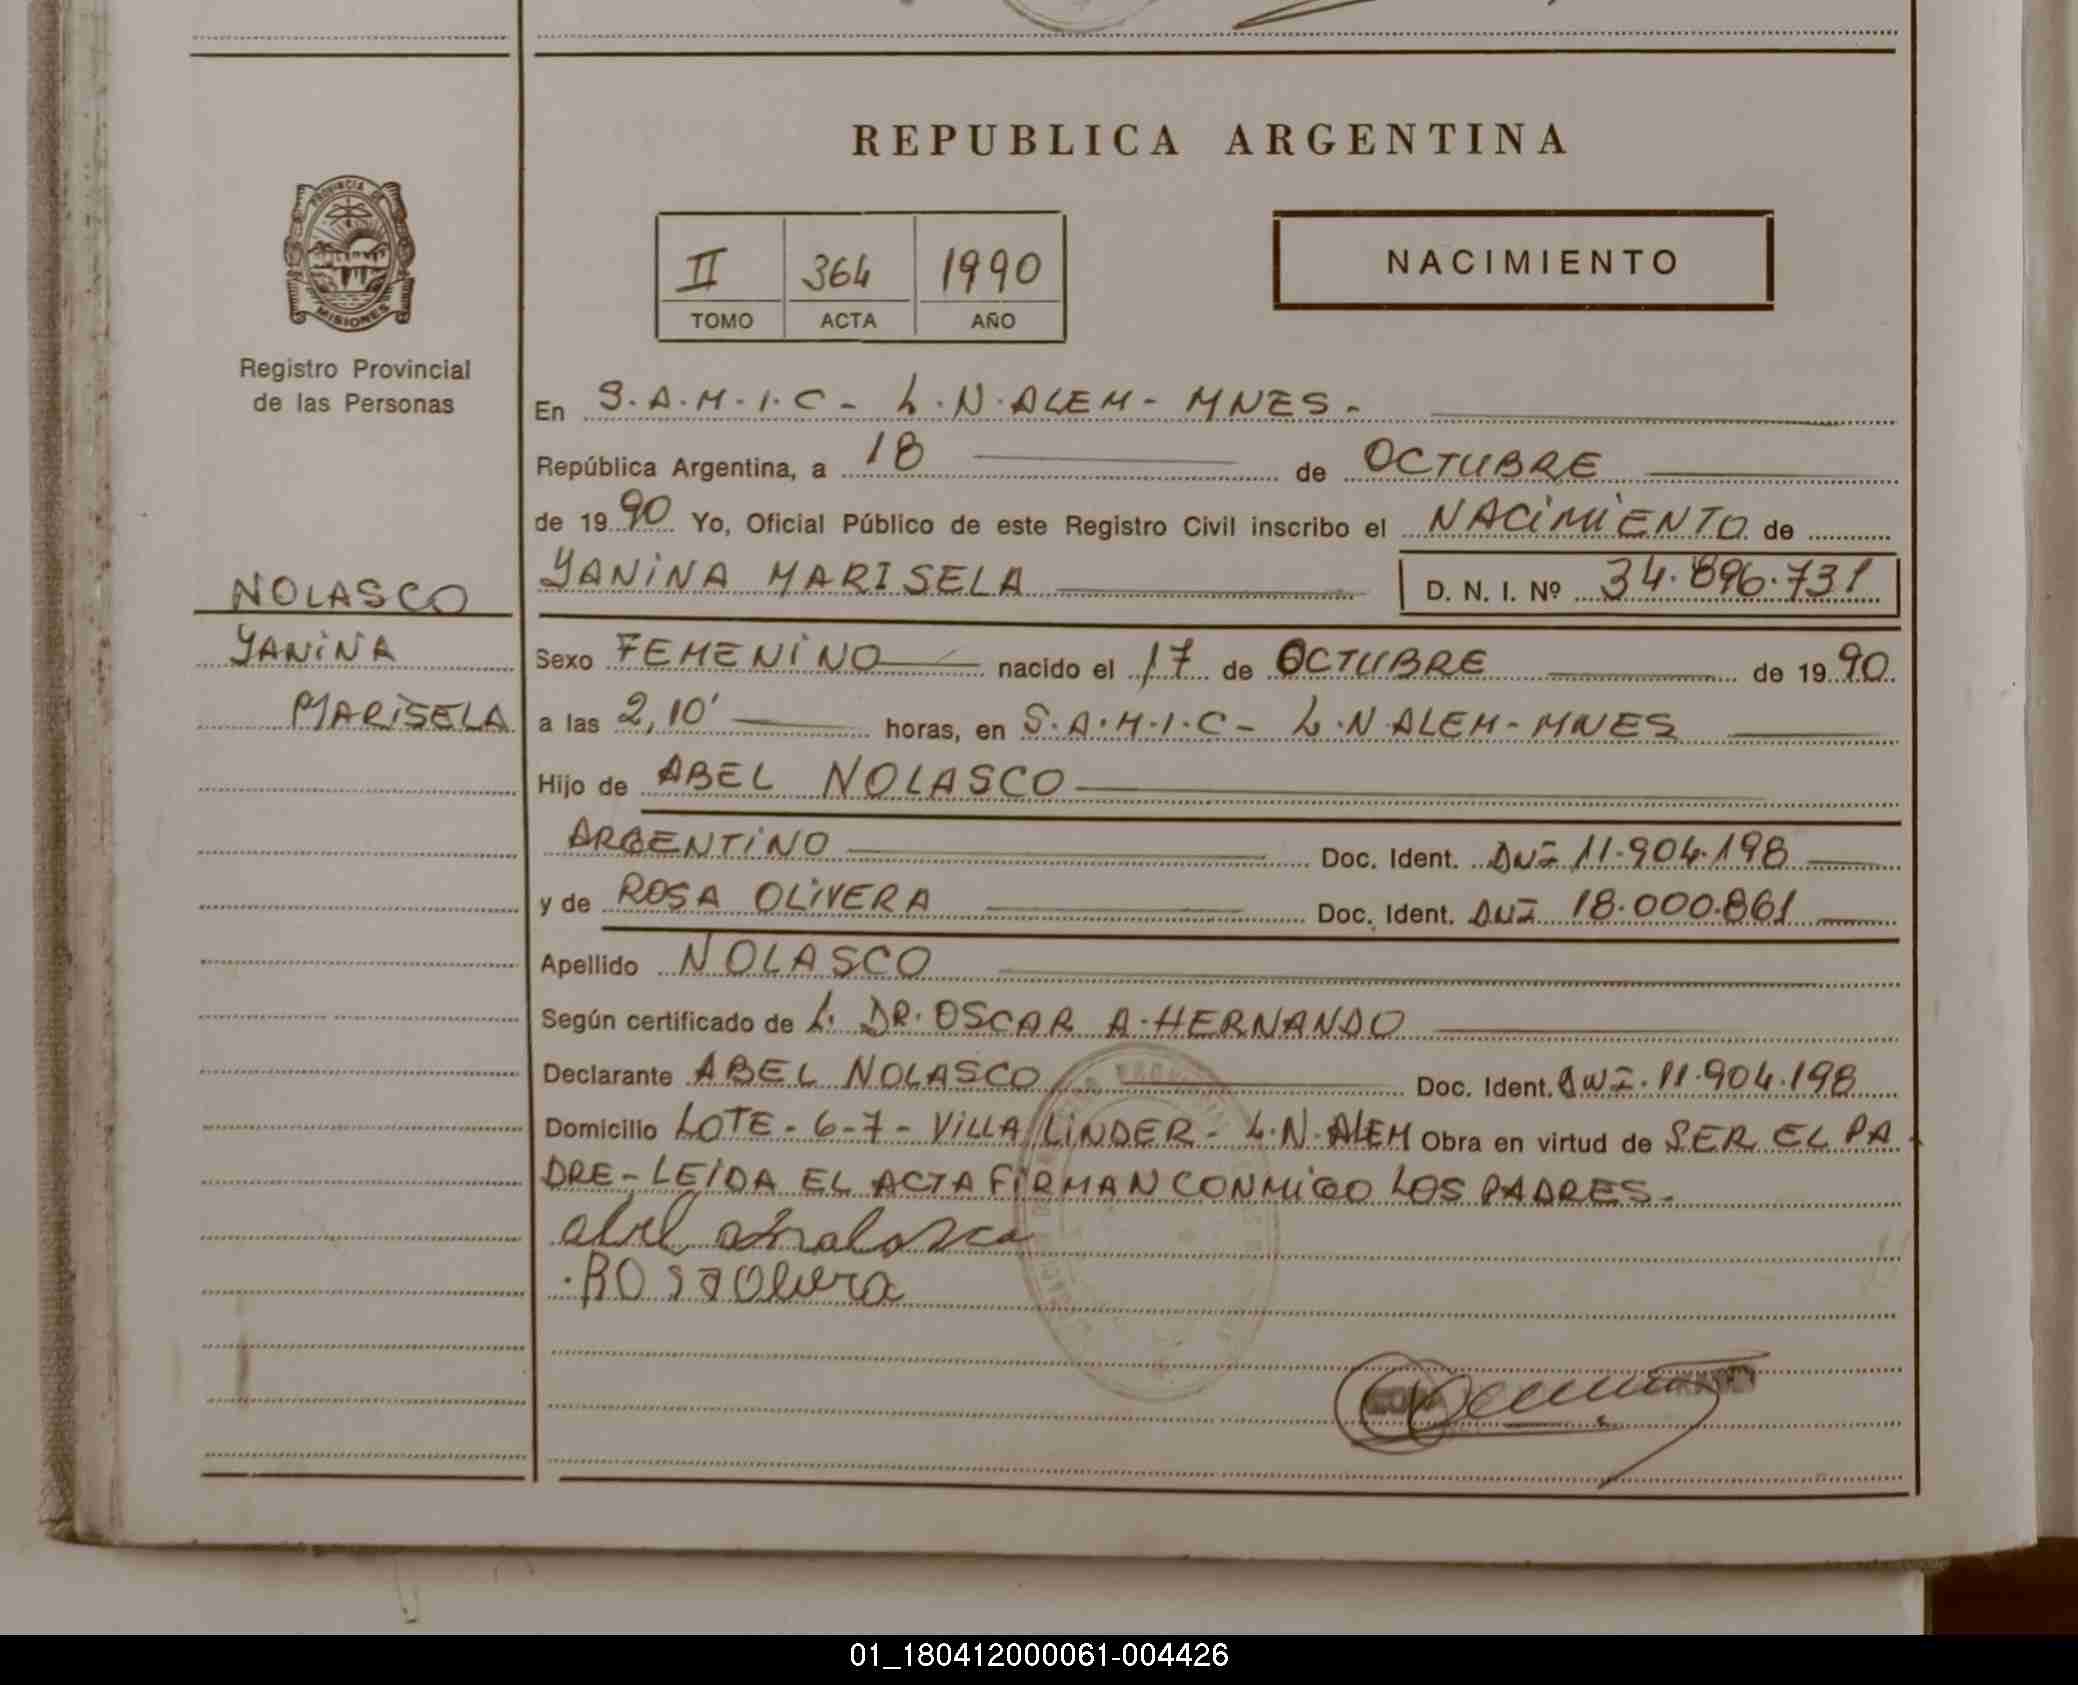 REPUBLICA ARGENTINA
PROVINCIA DE
MISIONES
Registro Provincial
de las Personas
II 364 1990
TOMO ACTA AÑO
NACIMIENTO
En S.A.M.I.C - L.N.ALEM - MNES.-
República Argentina, a 18 de OCTUBRE
de 1990 Yo, Oficial Público de este Registro Civil inscribo el NACIMIENTO de
YANINA MARISELA D. N. I. Nº 34.896.731
NOLASCO
YANINA
MARISELA
Sexo FEMENINO nacido el 17 de OCTUBRE de 1990
a las 2,10' horas, en S.A.M.I.C - L.N.ALEM - MNES
Hijo de ABEL NOLASCO
ARGENTINO Doc. Ident. DNI 11.904.198
y de ROSA OLIVERA Doc. Ident. DNI 18.000.861
Apellido NOLASCO
Según certificado de L. DR. OSCAR A. HERNANDO
Declarante ABEL NOLASCO Doc. Ident. DNI. 11.904.198
Domicilio LOTE - 6-7 - VILLA LINDER - L.N.ALEM Obra en virtud de SER EL PA
DRE - LEIDA EL ACTA FIRMAN CONMIGO LOS PADRES.-
Rosa Olivera
01_180412000061-004426